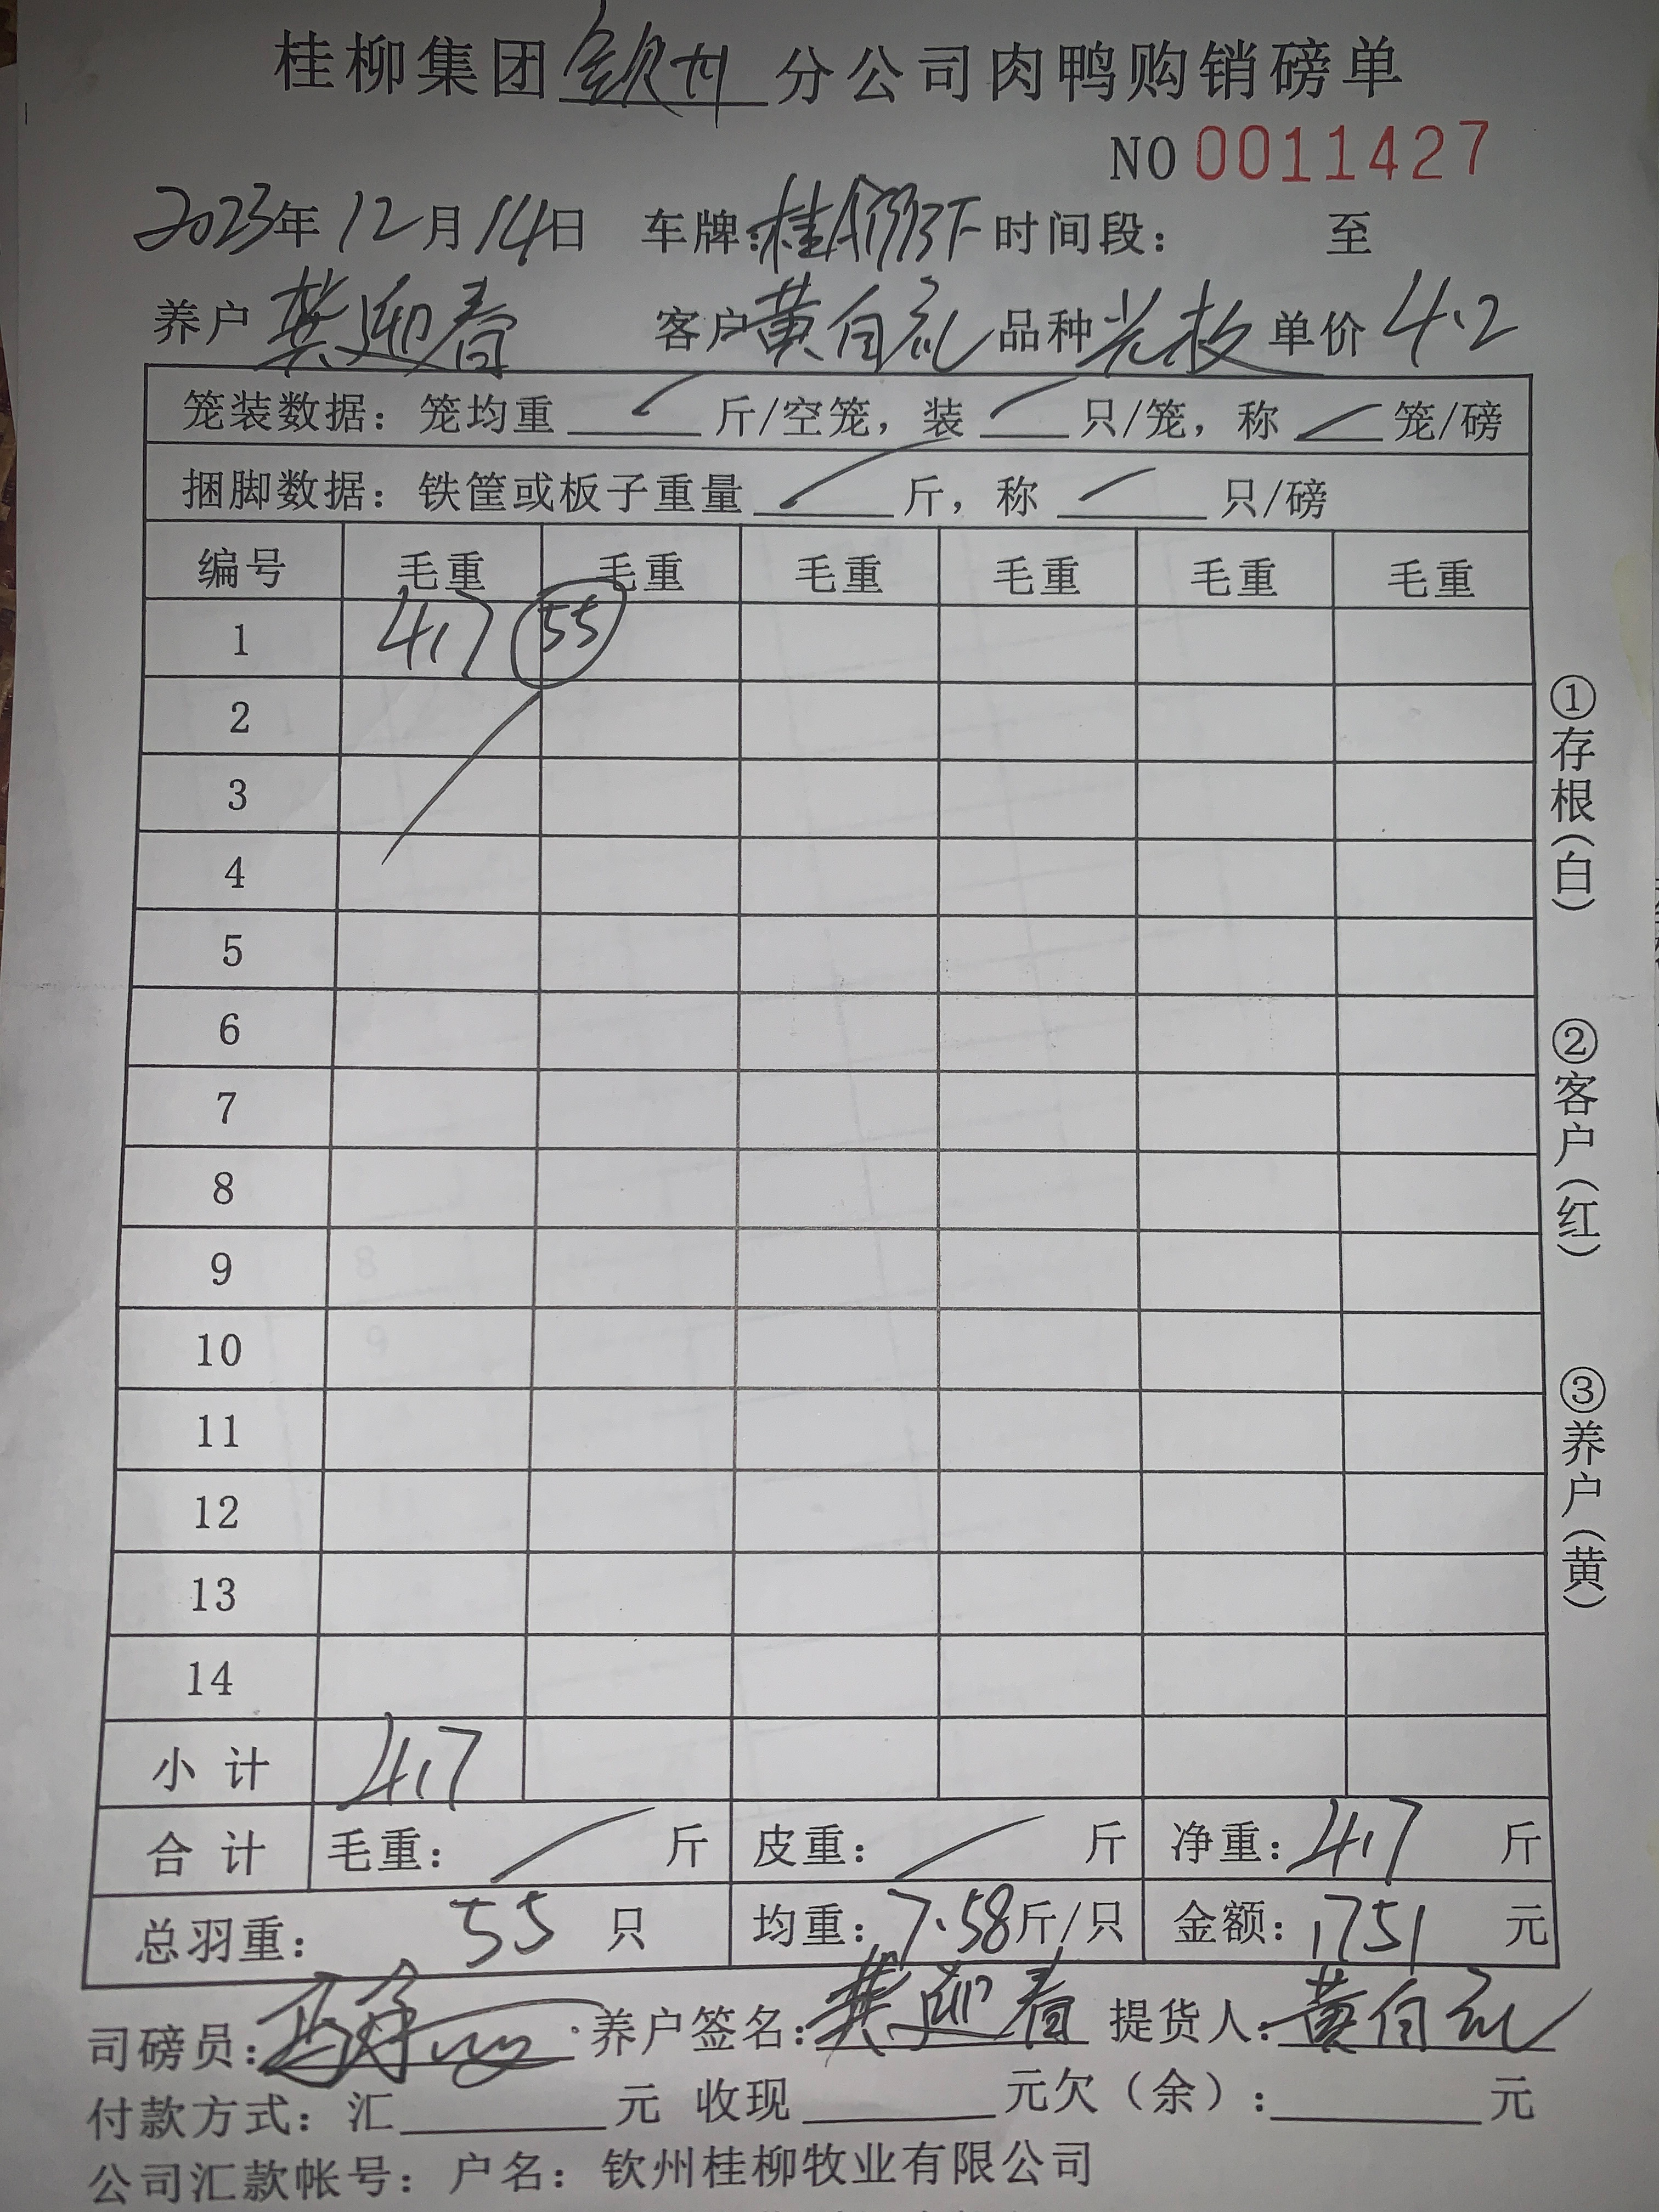 桂柳集团钦州分公司肉鸭购销磅单
NO 0011427
2023年12月14日 车牌: 时间段: 至
养户 龚迎春 客户 黄自礼 品种 单价 4.2
笼装数据: 笼均重 / 斤/空笼, 装 / 只/笼, 称 / 笼/磅
捆脚数据: 铁筐或板子重量 / 斤, 称 / 只/磅
编号 毛重 毛重 毛重 毛重 毛重 毛重
1 417 55
2
3
4
5
6
7
8
9
10
11
12
13
14
小计 417
合计 毛重: / 斤 皮重: / 斤 净重: 417 斤
总羽重: 55 只 均重: 7.58斤/只 金额: 1751 元
司磅员: 养户签名: 龚迎春 提货人: 黄自礼
付款方式: 汇 元 收现 元欠(余): 元
公司汇款帐号: 户名: 钦州桂柳牧业有限公司
①存根(白)
②客户(红)
③养户(黄)